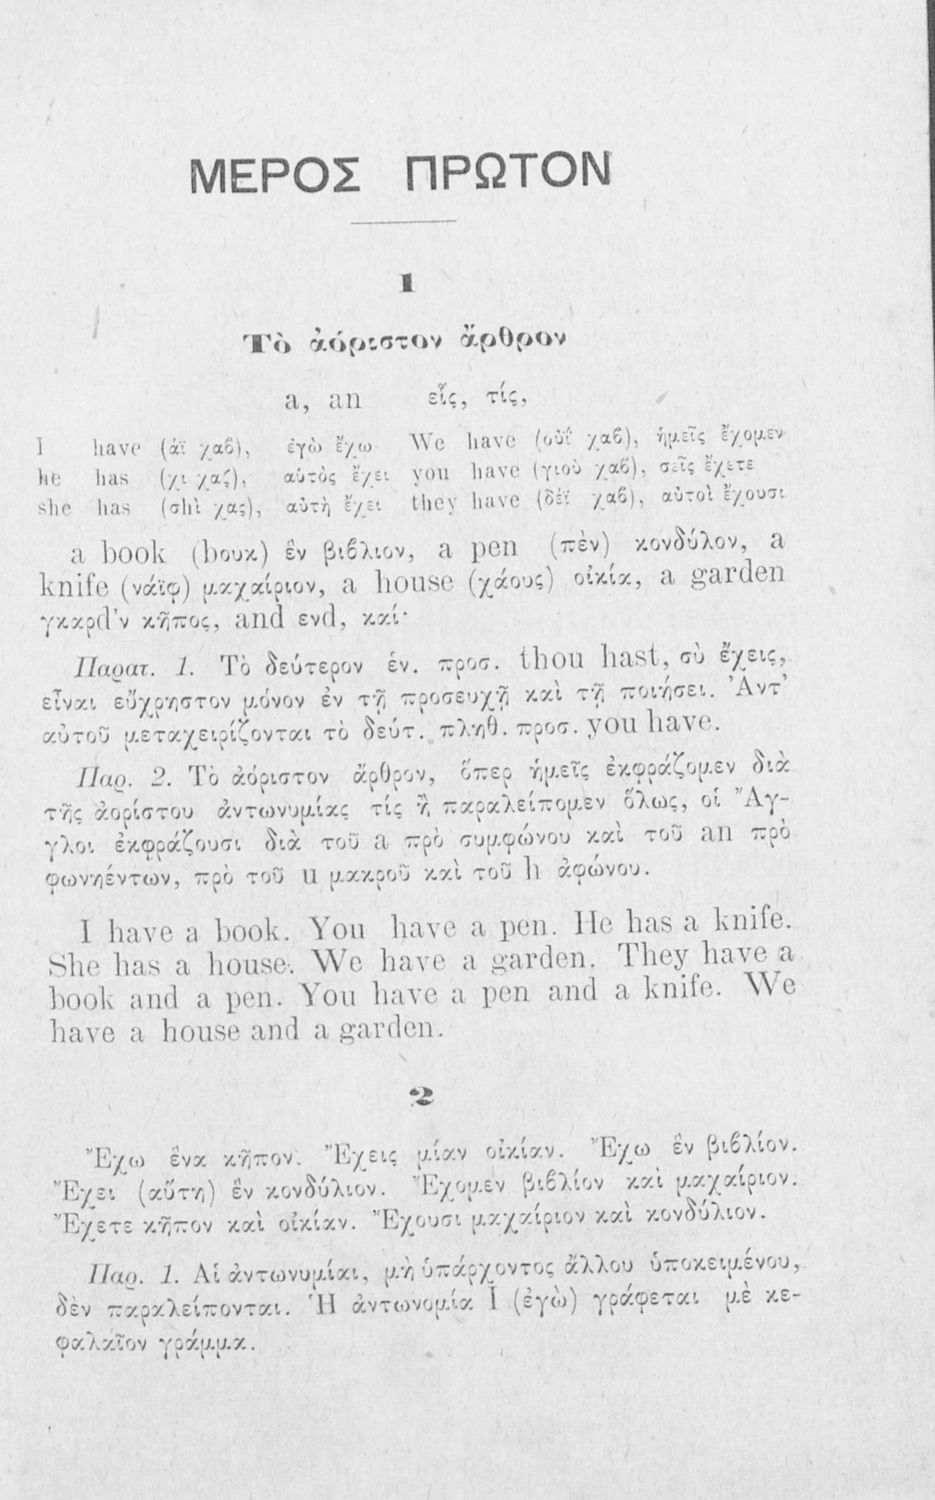 ΜΕΡΟΣ ΠΡΩΤΟΝ
1
Τὸ ἀόριστον ἄρθρον
a, an εἷς, τίς,
I have (ἀῒ χαβ), ἐγὼ ἔχω We have (οὐῒ χαβ), ἡμεῖς ἔχομεν
he has (χι χας), αὐτὸς ἔχει you have (γιοὺ χαβ), σεῖς ἔχετε
she has (σhὶ χας), αὐτὴ ἔχει they have (δέϊ χαβ), αὐτοὶ ἔχουσι
a book (bουκ) ἓν βιβλιον, a pen (πὲν) κονδύλον, a
knife (νάϊφ) μαχαίριον, a house (χάους) οἰκία, a garden
γκαρd'ν κῆπος, and ενd, καί·
Παρατ. 1. Τὸ δεύτερον ἑν. προσ. thou hast, σὺ ἔχεις,
εἶναι εὔχρηστον μόνον ἐν τῇ προσευχῇ καὶ τῇ ποιήσει. Ἀντ'
αὐτοῦ μεταχειρίζονται τὸ δεύτ. πληθ. προσ. you have.
Παρ. 2. Τὸ ἀόριστον ἄρθρον, ὅπερ ἡμεῖς ἐκφράζομεν διὰ
τῆς ἀορίστου ἀντωνυμίας τίς ἢ παραλείπομεν ὅλως, οἱ Ἄγ-
γλοι ἐκφράζουσι διὰ τοῦ a πρὸ συμφώνου καὶ τοῦ an πρὸ
φωνηέντων, πρὸ τοῦ u μακροῦ καὶ τοῦ h ἀφώνου.
I have a book. You have a pen. He has a knife.
She has a house. We have a garden. They have a
book and a pen. You have a pen and a knife. We
have a house and a garden.
2
Ἔχω ἕνα κῆπον. Ἔχεις μίαν οἰκίαν. Ἔχω ἓν βιβλίον.
Ἔχει (αὕτη) ἓν κονδύλιον. Ἔχομεν βιβλίον καὶ μαχαίριον.
Ἔχετε κῆπον καὶ οἰκίαν. Ἔχουσι μαχαίριον καὶ κονδύλιον.
Παρ. 1. Αἱ ἀντωνυμίαι, μὴ ὑπάρχοντος ἄλλου ὑποκειμένου,
δὲν παραλείπονται. Ἡ ἀντωνομία I (ἐγὼ) γράφεται μὲ κε-
φαλαῖον γράμμα.